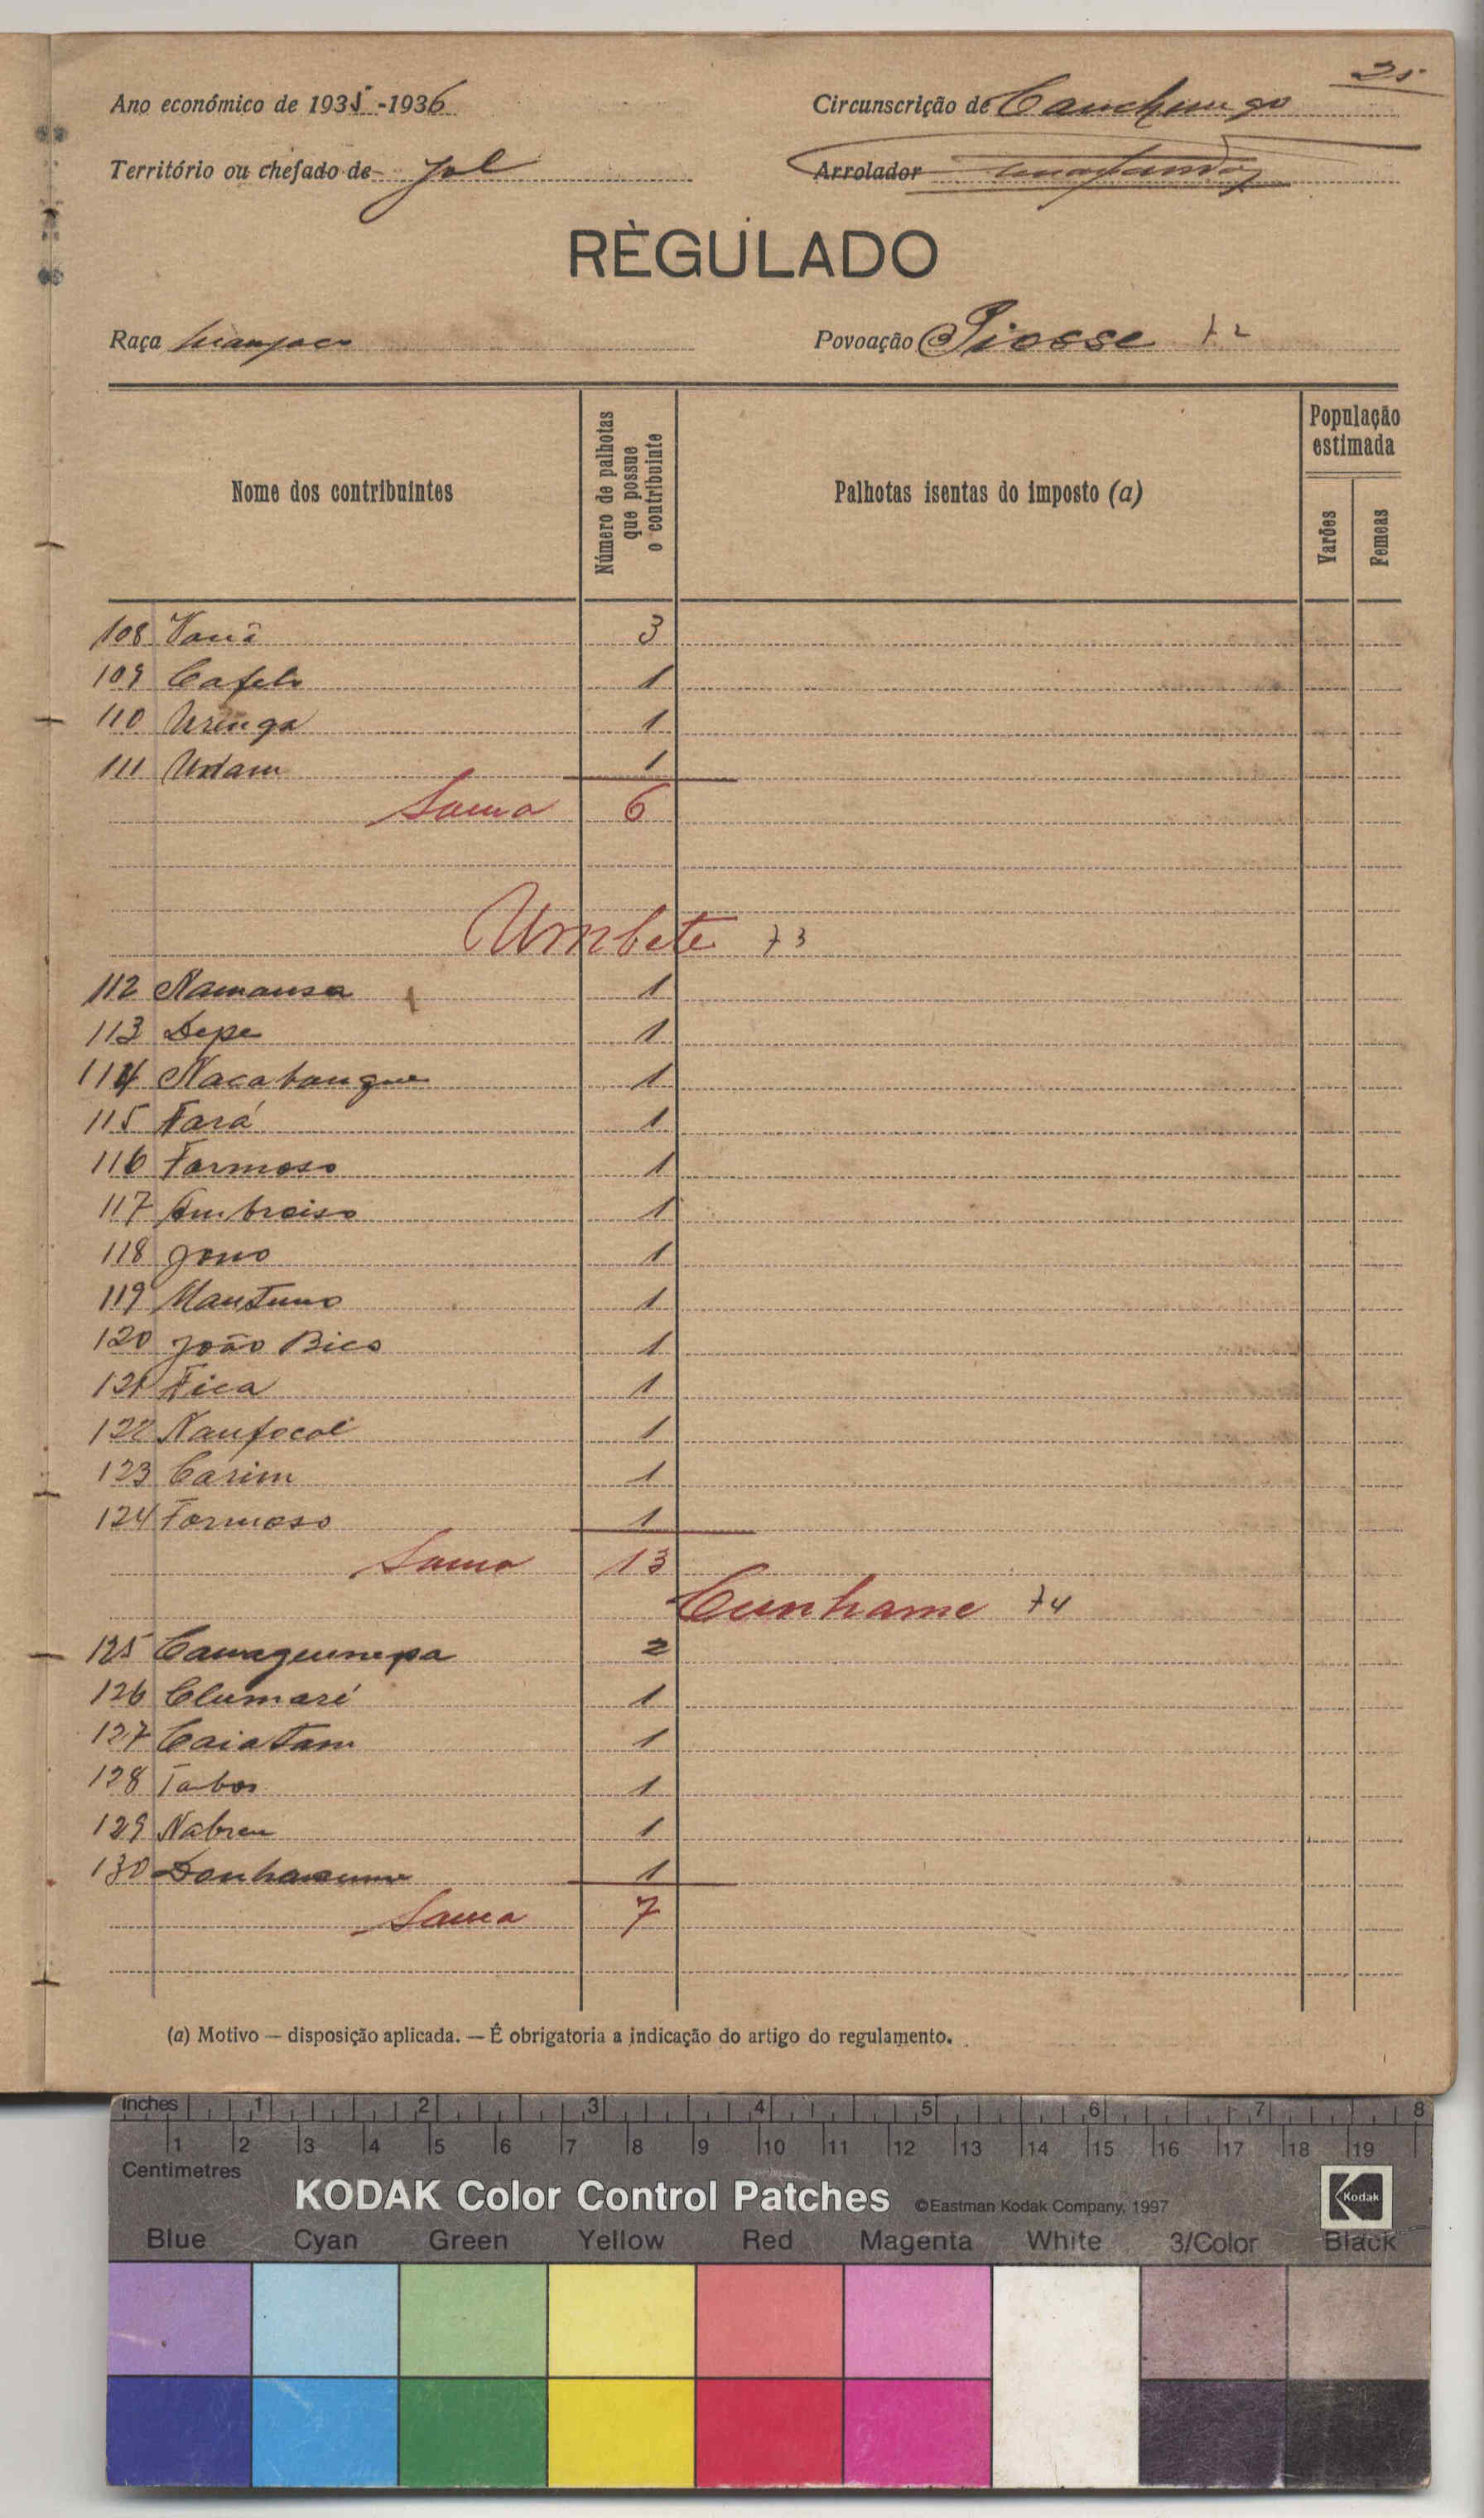 25
Ano económico de 1935-1936
Circunscrição de Canchungo
Território ou chefado de Jol
Arrolador
RÈGULADO
Raça Manjaco
Povoação Piosse 72
Nome dos contribuintes
Número de palhotas que possue o contribuinte
Palhotas isentas do imposto (a)
População estimada
Varões
Femeas
108 3
109 Cafele 1
110 Uringa 1
111 Undam 1
Soma 6
Umbete 73
112 Namansa 1
113 Depe 1
114 Nacatangue 1
115 Tará 1
116 Formoso 1
117 Ambroiso 1
118 Jono 1
119 Mantuno 1
120 João Bico 1
121 Fica 1
122 Naufocol 1
123 Carim 1
124 Formoso 1
Soma 13
Cunhame 74
125 2
126 Clumaré 1
127 Caiatam 1
128 Tabos 1
129 Nabreu 1
130 1
Soma 7
(a) Motivo — disposição aplicada. — É obrigatoria a indicação do artigo do regulamento.
Inches 1 2 3 4 5 6 7 8
1 2 3 4 5 6 7 8 9 10 11 12 13 14 15 16 17 18 19
Centimetres
KODAK Color Control Patches ©Eastman Kodak Company, 1997 Kodak
Blue Cyan Green Yellow Red Magenta White 3/Color Black